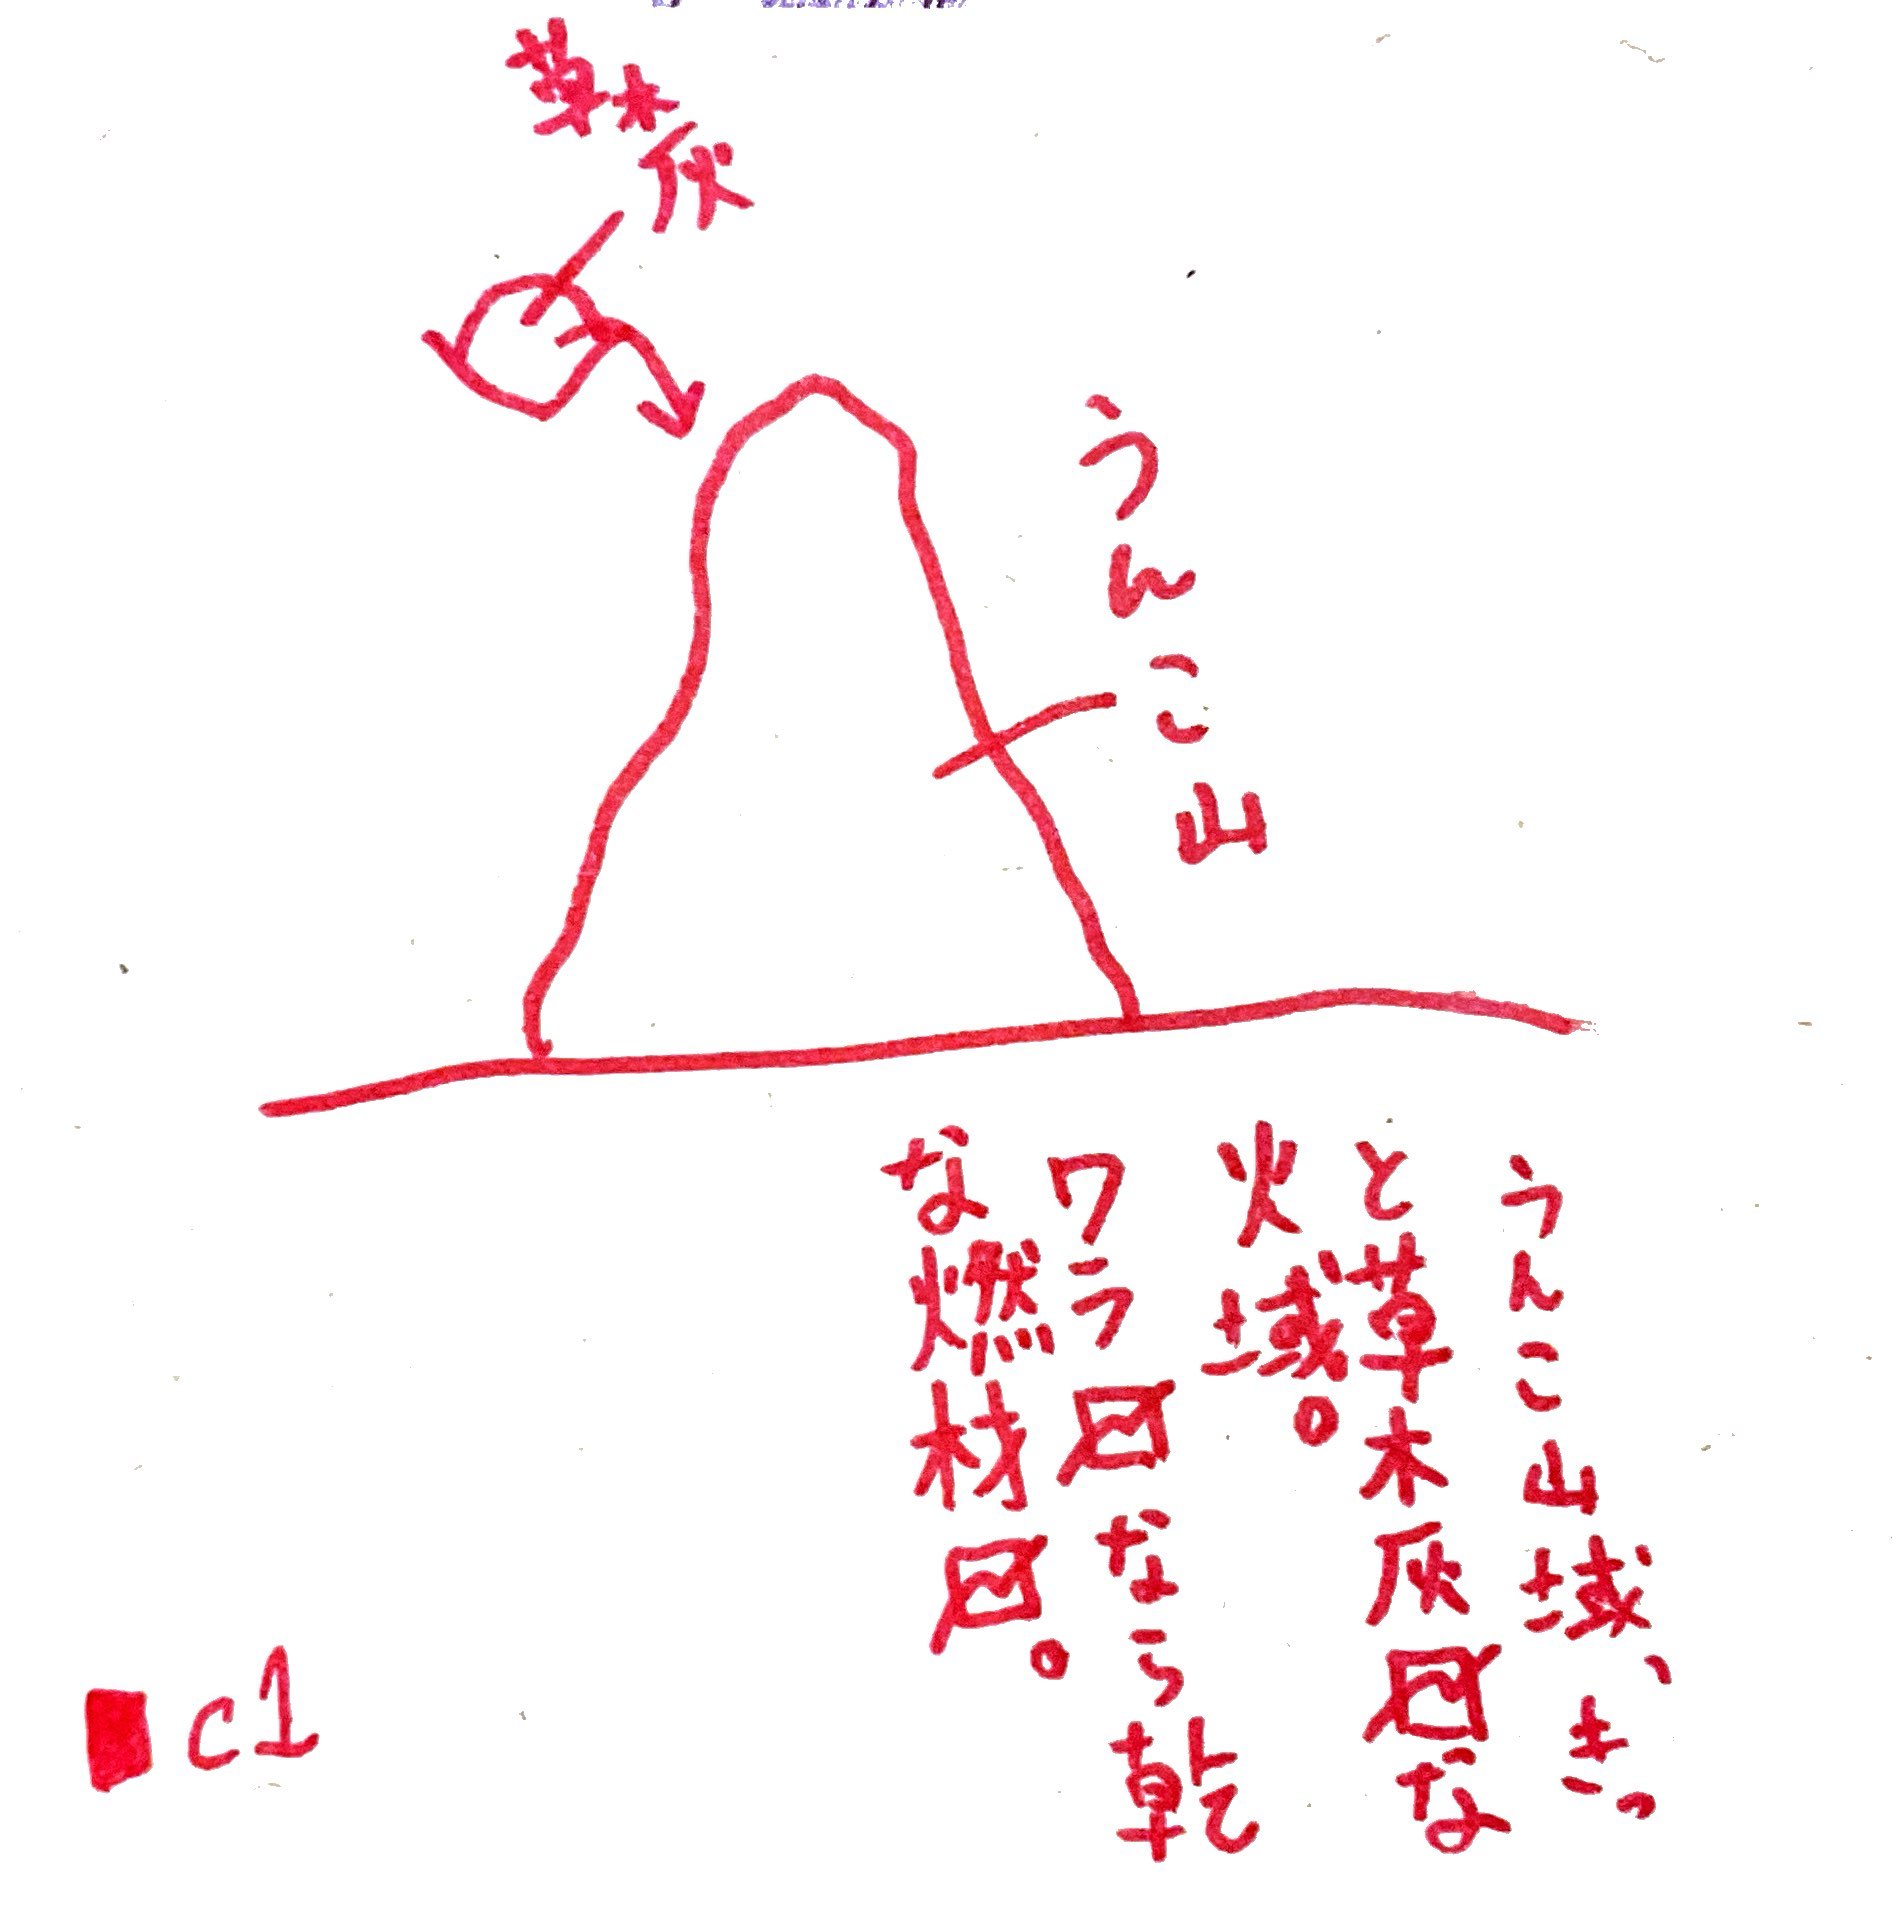 草木灰
うんこ山
うんこ山域、きっ
と草木灰〼な
火域。
ワラ〼なら乾
な燃材〼。
c1